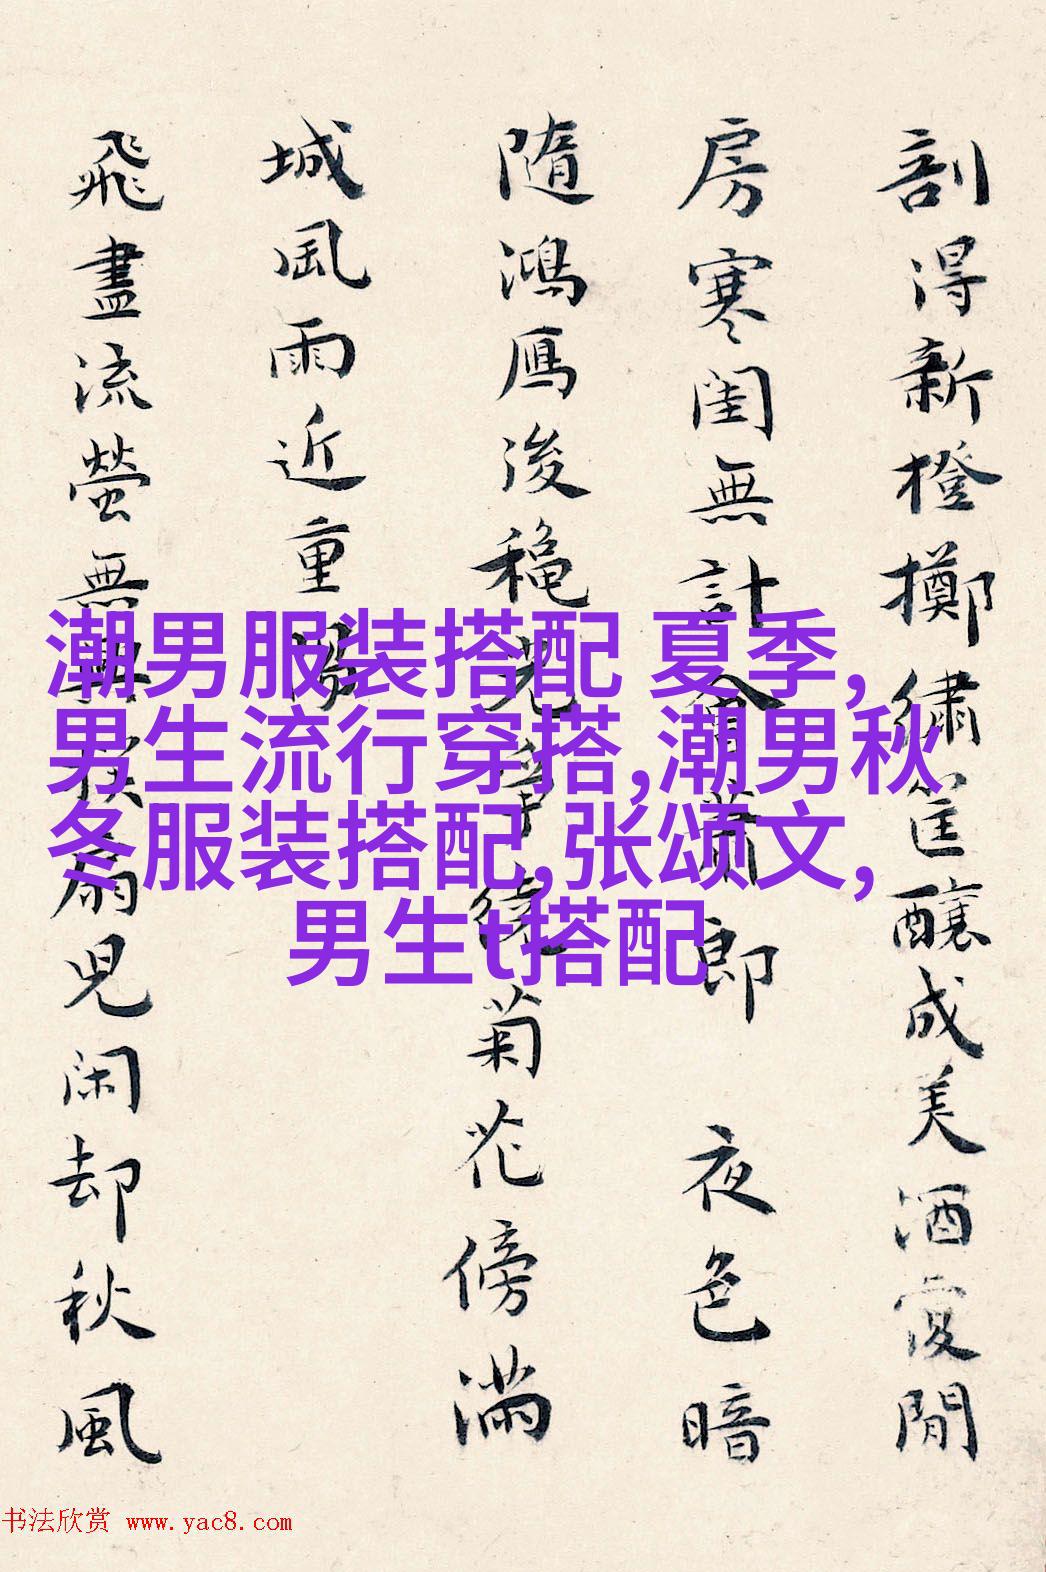 剖得新橙擲繡筐釀成美酒愛閒
房寒閨無計會蕭郎 夜色暗
隨鴻雁後穐光爭繞菊花傍滿
城風雨近重陽
飛盡流螢無興撲扇兒闲却秋風
潮男服装搭配 夏季,
男生流行穿搭,潮男秋
冬服装搭配,张颂文,
男生t搭配
书法欣赏 www.yac8.com